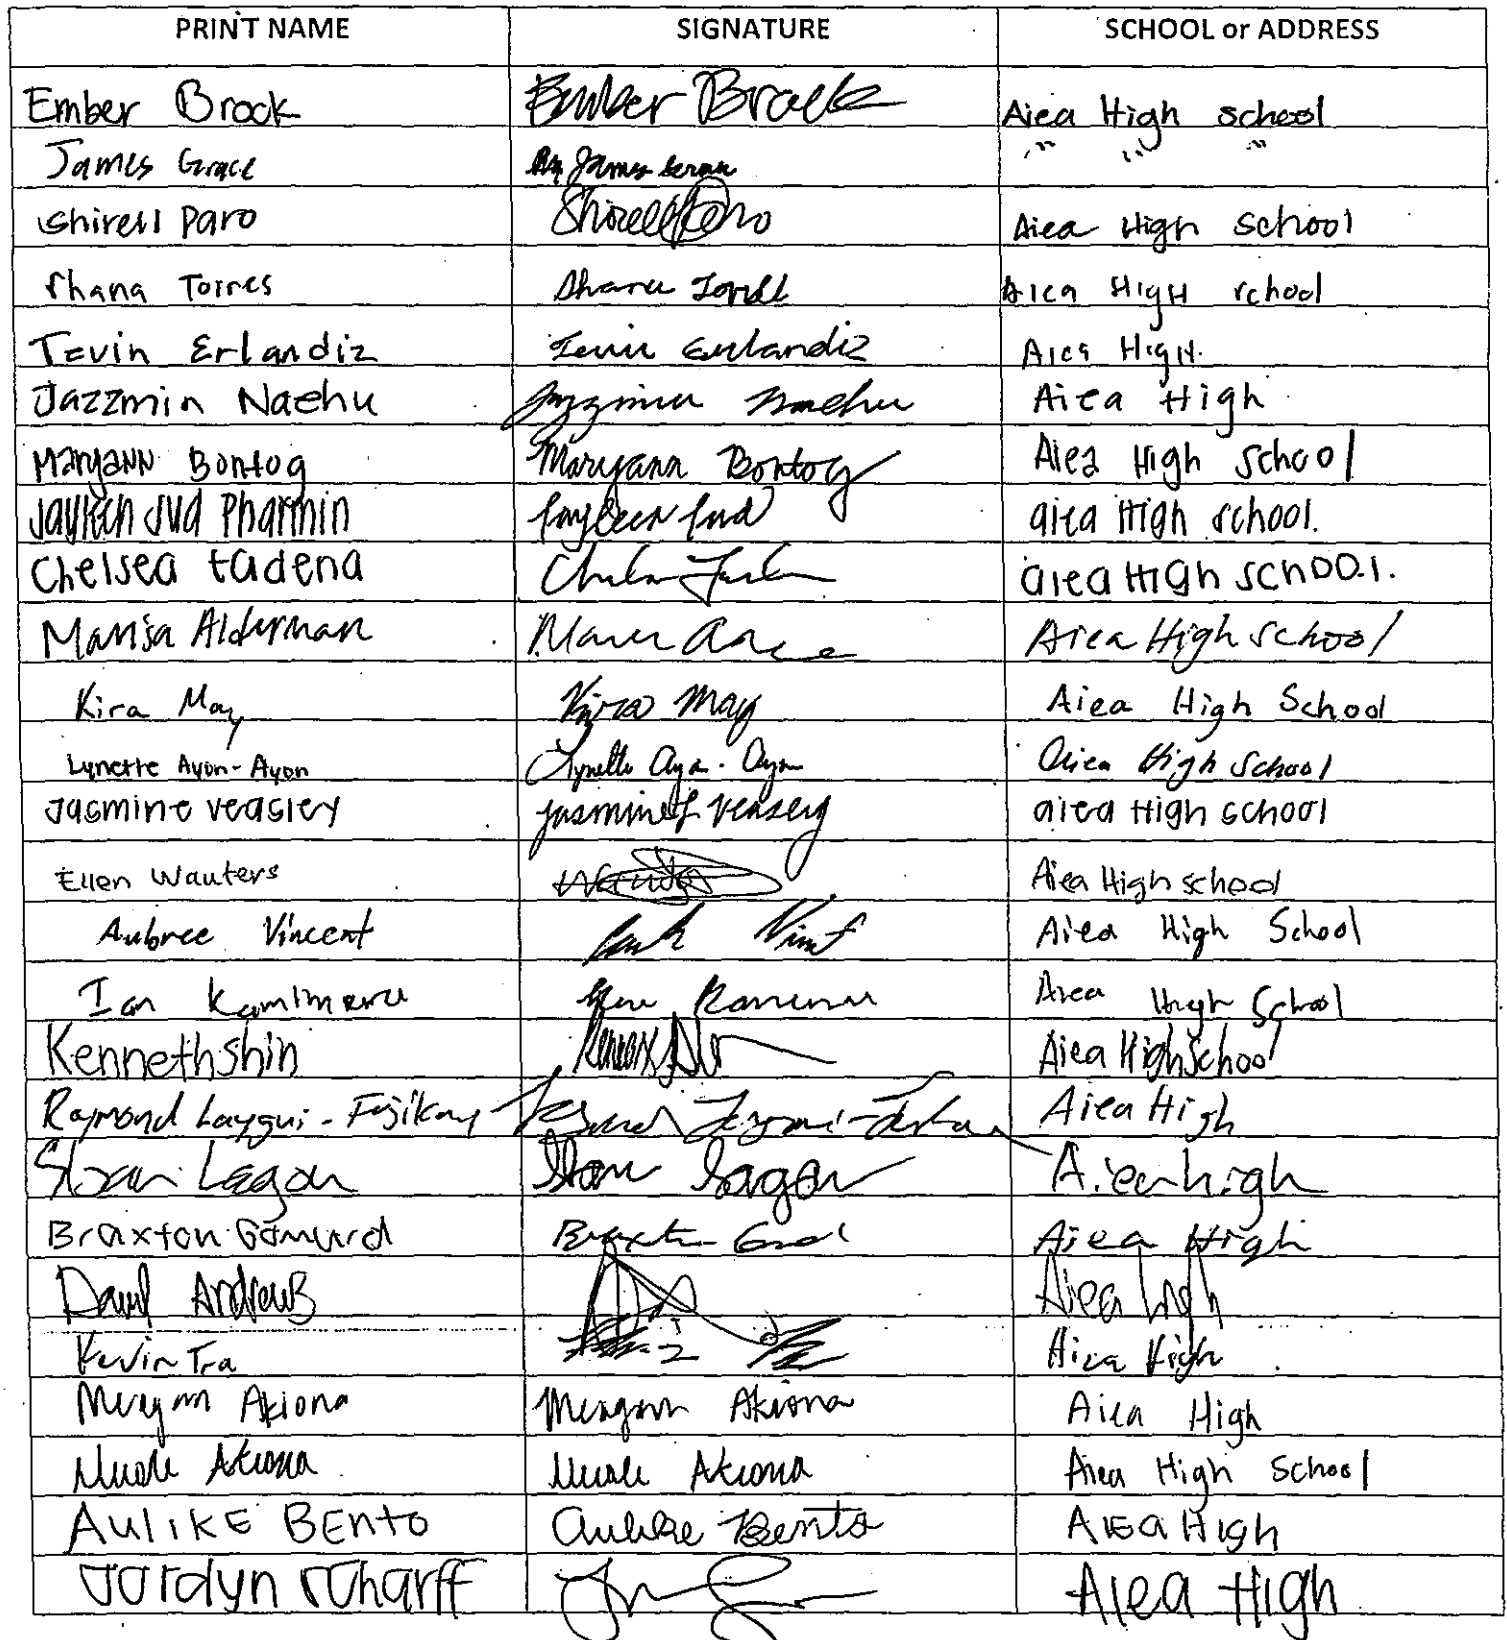 PRINT NAME SIGNATURE SCHOOL or ADDRESS
Ember Brock Ember Brock Aiea High school
James Grace James Grace " " "
Shirell Paro Shirell Paro Aiea High school
Shana Torres Shana Torres Aiea HigH school
Tevin Erlandiz Tevin Erlandiz Aiea High.
Jazzmin Naehu Jazzmin Naehu Aiea High
Maryann Bontog Maryann Bontog Aiea High School
Jayleen Jud Pharmin Jayleen Jud aiea High school.
Chelsea tadena aiea High school.
Marisa Alderman Aiea High school
Kira May Kira May Aiea High School
Lynette Ayon-Ayon Lynette Ayon-Ayon Aiea High School
Jasmine Veasley Jasmine Veasley aiea High school
Ellen Wauters Wauters Aiea High school
Aubree Vincent Aiea High School
Ian Aiea High School
Kenneth Shin Aiea High School
Raymond Laygui-Fujikay Aiea High
Sloan Lagon Sloan Lagon Aiea high
Braxton Aiea High
Andrews Aiea high
Kevin Tra Aiea High
Meagan Akiona Meagan Akiona Aiea High
Nicole Akiona Nicole Akiona Aiea High School
AULIKE BENTO Aulike Bento AIEA HIGH
Jordyn Scharff Aiea High